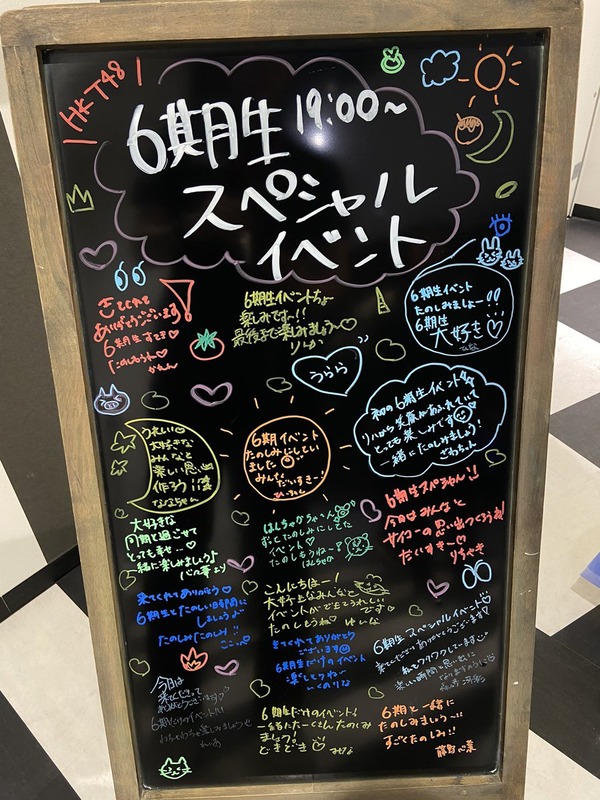 HKT48
6期生 19:00〜
スペシャル
イベント
きてくれて
ありがとうございます
6期生すてき♡
たのしもうね♡
かれん
6期生イベントちょー
楽しみです〜!!
最後まで楽しみましょう〜♡
りんか
6期生イベント
たのしみましょー!!
6期生
大好き♡
ひな
うらら
初の6期生イベント
リハから笑顔があふれていて
とっても楽しみです
一緒にたのしみましょう!
さわちゃん
うれしい
大好きな
みんなと
楽しい思い出
作ろう
ななちゃん
6期イベント
たのしみにしてい
ました
みんな
だいすきー!
大好きな
同期と過ごせて
とっても幸せ…♡
一緒に楽しみましょう♪
はしゃかちゃ〜ん
ずっとたのしみにしてた
イベント♡
たのしもうね〜
6期生スペシャル!!
今日はみんなと
サイコーの思い出つくろうね!
だいすきー♡
りぅちき
来てくれてありがとう♡
6期生とたのしい日時間に
しましょうよ〜
たのしみたのしみ!!
ここ
こんにちはー!
大好きなみんなと
イベントができてうれしい
です♡
たのしもうね♡ゆいな
きてくれてありがとう
ございます
6期生だけのイベント
楽しもうね〜
いくのりな
6期生スペシャルイベント
来てくださりありがとうございます!
私もワクワクしています
楽しい時間を思い出に
今日は
来てくださって
ありがとうございます♡
6期だけのイベント!!!
わちゃわちゃ楽しみましょうせ
れいあ
6期生だけのイベント!
一緒にたーくさんたのしみ
ましょう!
どきどき♡ みずな
6期と一緒に
たのしみましょう〜!!
すごくたのしみ!!
藤野心菜